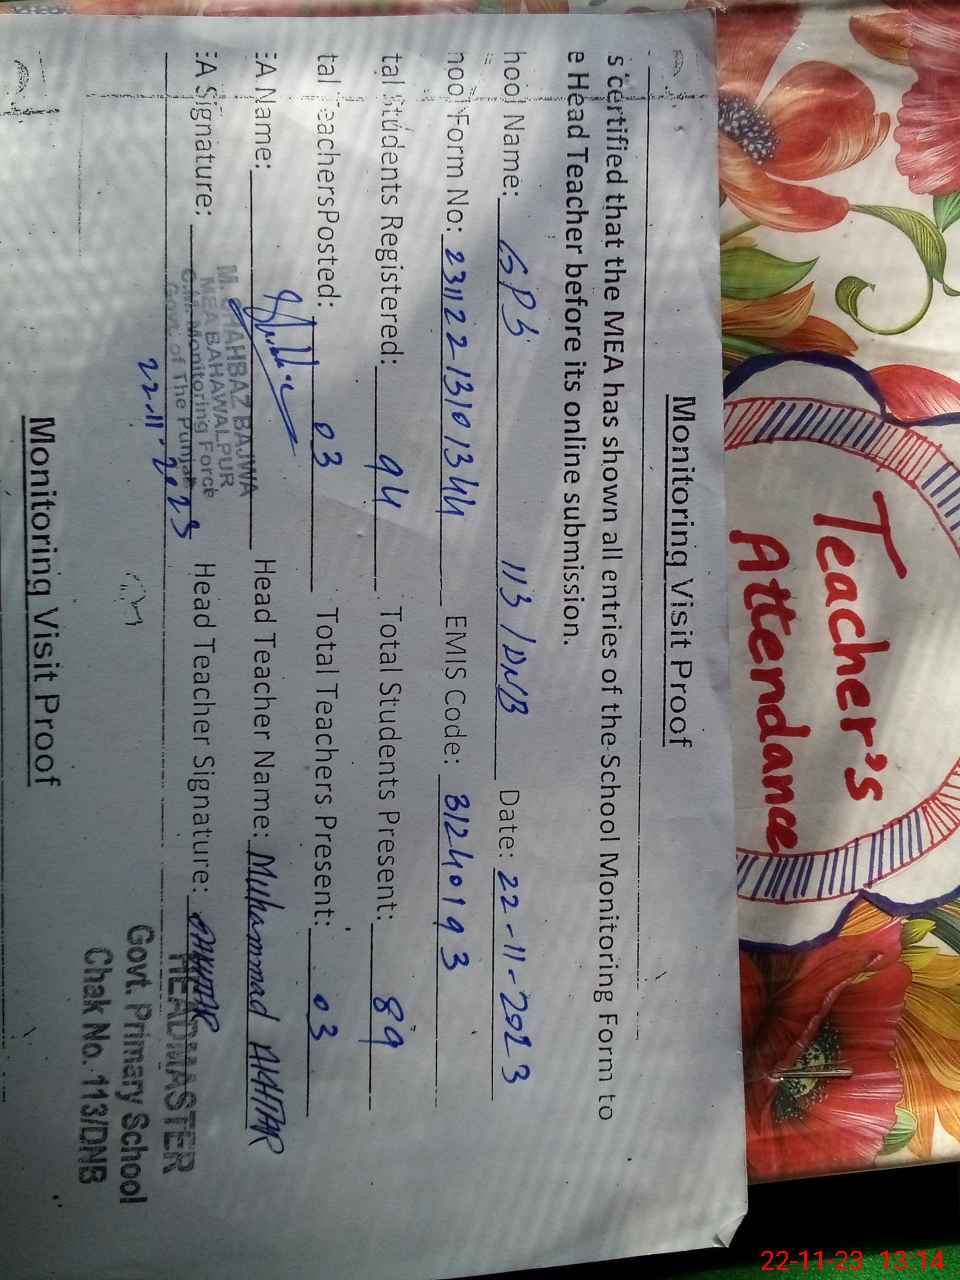 Teacher's
Attendance
Monitoring Visit Proof
s certified that the MEA has shown all entries of the School Monitoring Form to
e Head Teacher before its online submission.
hool Name: GPS 113/DNB Date: 22-11-2023
hool Form No: 23112213101344 EMIS Code: 31240193
tal Students Registered: 94 Total Students Present: 89
tal TeachersPosted: 03 Total Teachers Present: 03
EA Name: Head Teacher Name: Muhammad AKHTAR
EA Signature: Head Teacher Signature: AKHTAR
M. SHAHBAZ BAJWA
MEA BAHAWALPUR
C.M. Monitoring Force
Govt. of The Punjab
22-11-2023
HEADMASTER
Govt. Primary School
Chak No. 113/DNB
Monitoring Visit Proof
22-11-23 13:14